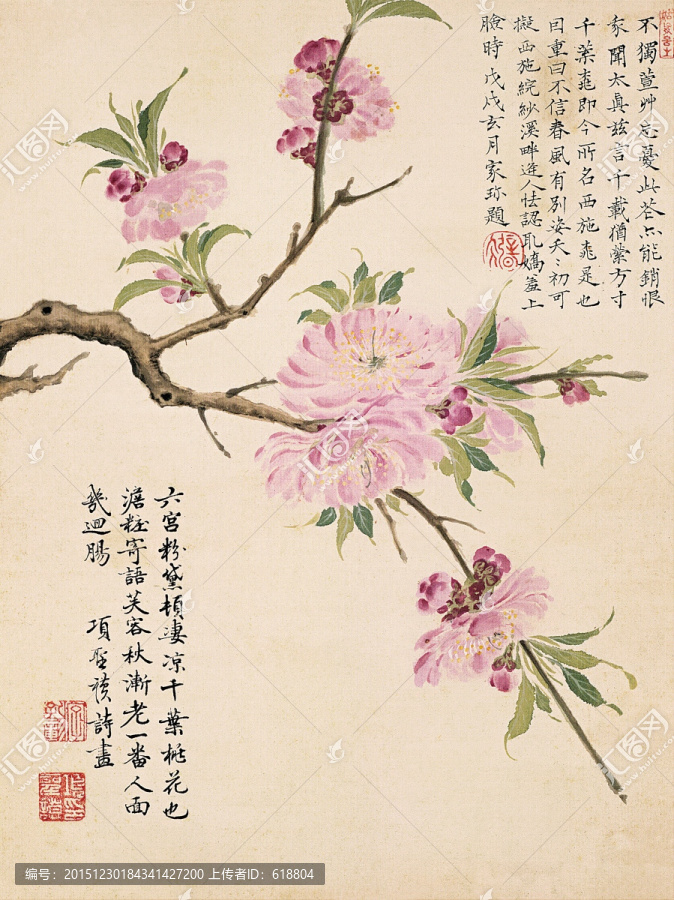 不獨萱艸忘憂此苍亽能銷恨
家聞太真玆言千載猶縈方寸
千葉桃即今所名西施桃是也
因重曰不信春風有別姿夭〻初可
擬西施綄紗溪畔逢人怯認乱嬌羞上
臉時 戊戌玄月家珎題
六宮粉黛頓凄凉千葉桃花也
澹粧寄語芙容秋漸老一番人面
幾迴腸
項聖謨詩畫
编号：20151230184341427200 上传者ID：618804
汇图网
www.huitu.com